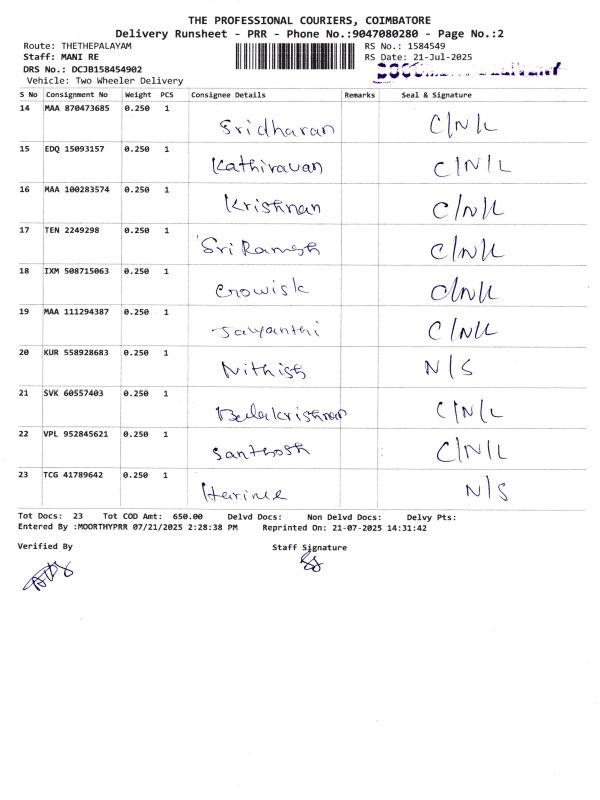 THE PROFESSIONAL COURIERS, COIMBATORE
Delivery Runsheet - PRR - Phone No.:9047080280 - Page No.:2
Route: THETHEPALAYAM RS No.: 1584549
Staff: MANI RE RS Date: 21-Jul-2025
DRS No.: DCJB158454902
Vehicle: Two Wheeler Delivery
S No Consignment No Weight PCS Consignee Details Remarks Seal & Signature
14 MAA 870473685 0.250 1 Sridharan C/N/L
15 EDQ 15093157 0.250 1 Kathiravan C/N/L
16 MAA 100283574 0.250 1 Krishnan C/N/L
17 TEN 2249298 0.250 1 Sri Ramesh C/N/L
18 IXM 508715063 0.250 1 Crowisk C/N/L
19 MAA 111294387 0.250 1 Jayanthi C/N/L
20 KUR 558928683 0.250 1 Nithish N/S
21 SVK 60557403 0.250 1 Balakrishnan C/N/L
22 VPL 952845621 0.250 1 Santhosh C/N/L
23 TCG 41789642 0.250 1 N/S
Tot Docs: 23 Tot COD Amt: 650.00 Delvd Docs: Non Delvd Docs: Delvy Pts:
Entered By :MOORTHYPRR 07/21/2025 2:28:38 PM Reprinted On: 21-07-2025 14:31:42
Verified By Staff Signature